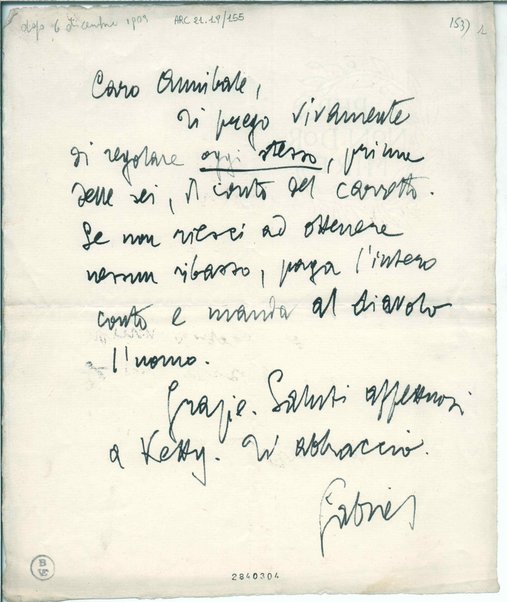 dopo 6 dicembre 1909 ARC 21.19/155 153) 1
Caro Annibale,
ti prego vivamente
di regolare oggi stesso, prima
delle sei, il conto del carretto.
Se non riesci ad ottenere
nessun ribasso, paga l'intero
conto e manda al diavolo
l'uomo.
Grazie. Saluti affettuosi
a Ketty. Ti abbraccio.
Gabriel
2840304